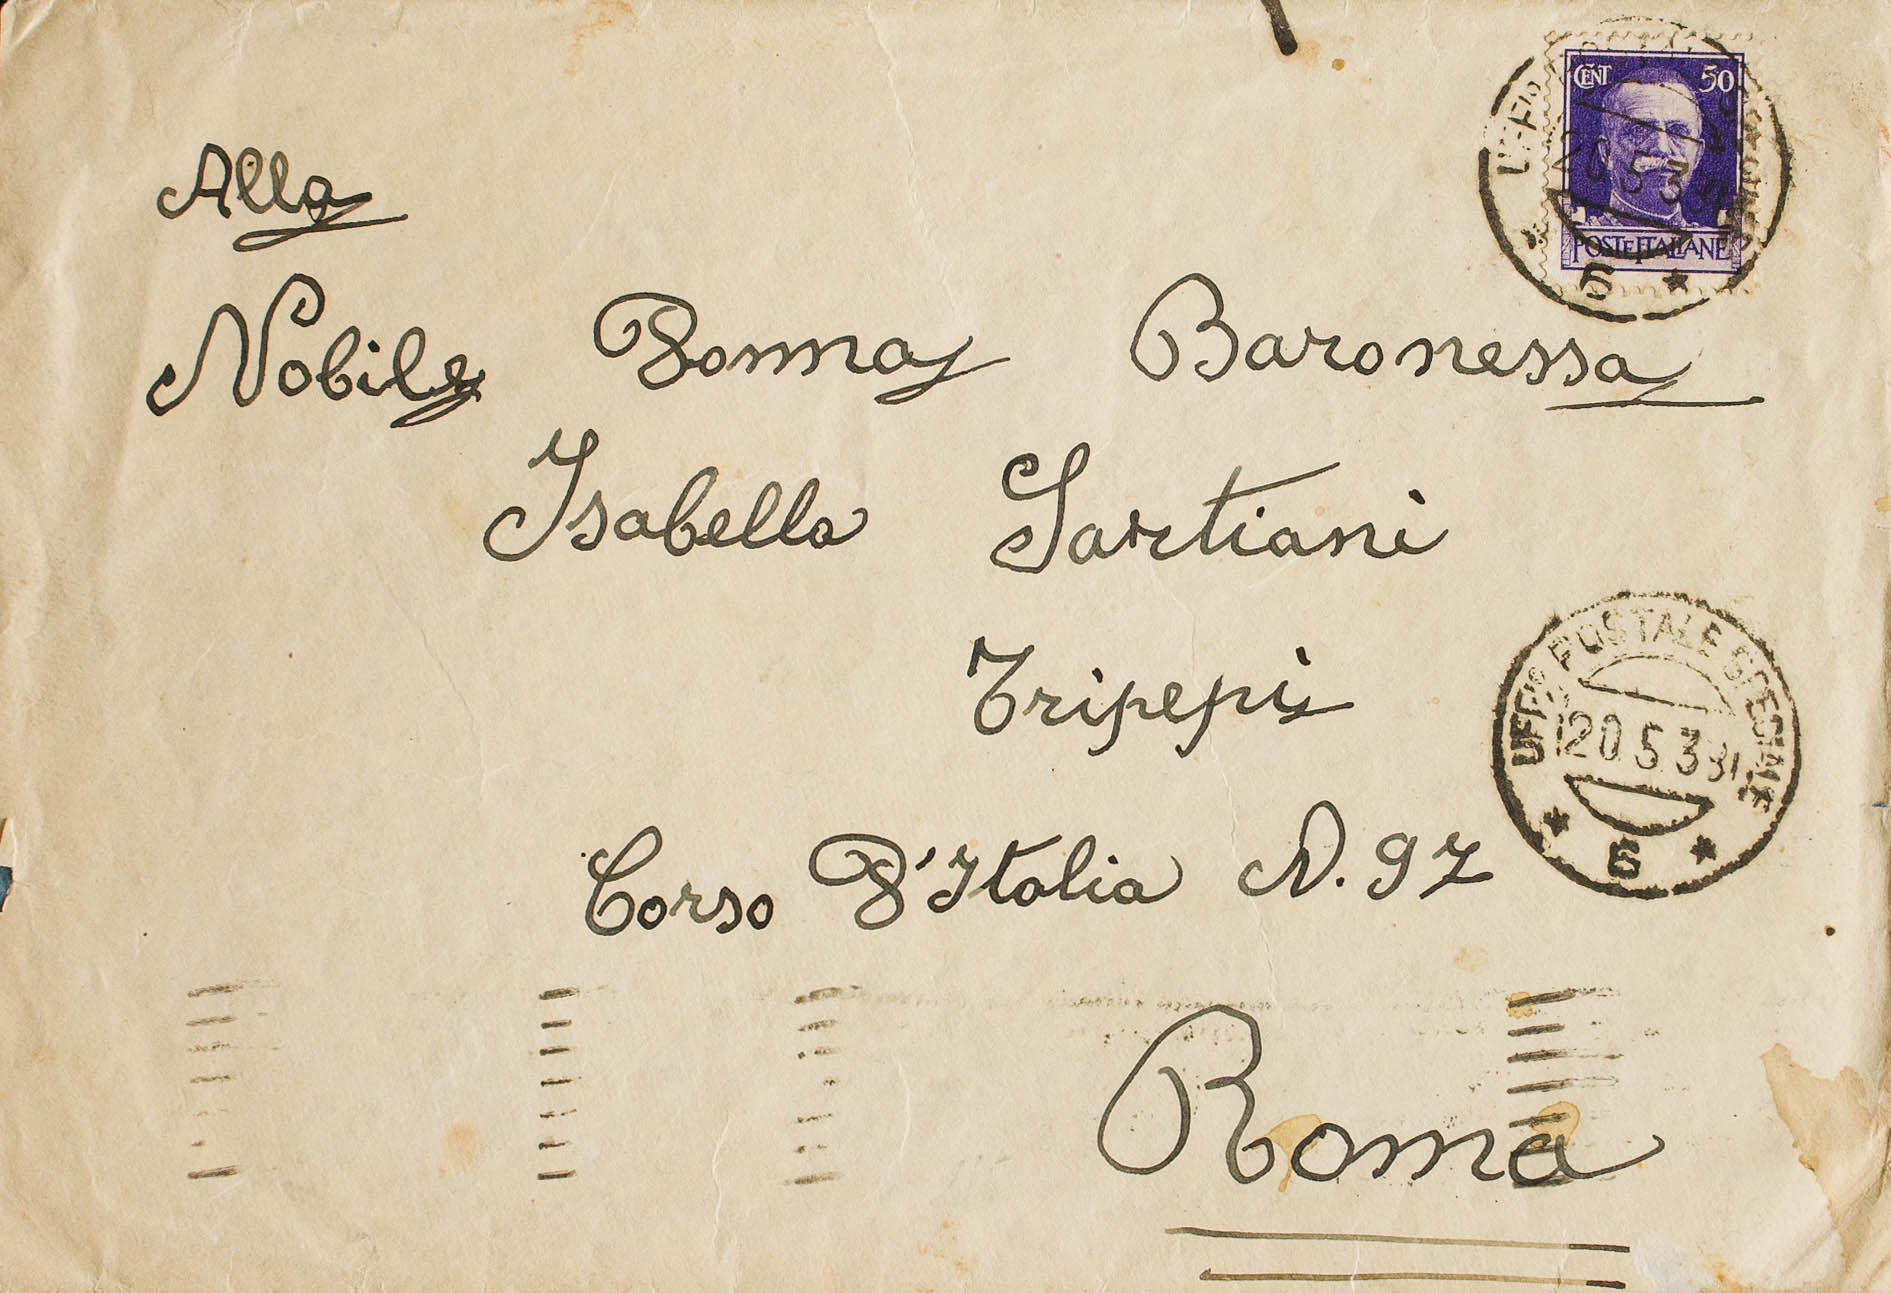 CENT 50
POSTE ITALIANE
6
Alla
Nobile Donna Baronessa
Isabella Sartiani
Tripepi
UFF° POSTALE SPECIALE
20 5 39
6
Corso D'Italia N. 97
Roma